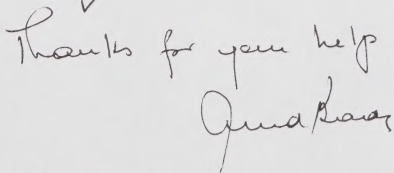 Thanks for your help